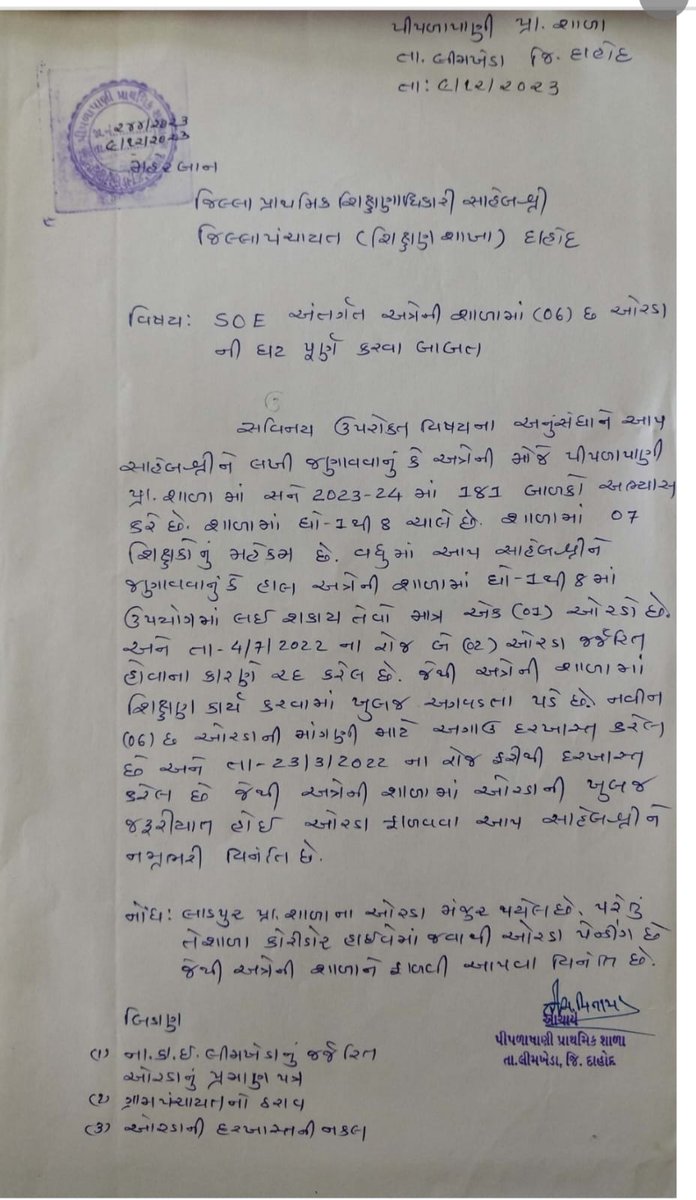 પીપળાપાણી પ્રા. શાળા
તા. લીમખેડા જિ. દાહોદ
તા: ૯/૧૨/૨૦૨૩
પીપળાપાણી પ્રાથમિક
૨૪૪/૨૦૨૩
૯/૧૨/૨૦૨૩
મહેરબાન
જિલ્લા પ્રાથમિક શિક્ષણાધિકારી સાહેબશ્રી
જિલ્લાપંચાયત (શિક્ષણ શાખા) દાહોદ
વિષય: SOE અંતર્ગત અત્રેની શાળામાં (06) છ ઓરડા
ની ઘટ પૂર્ણ કરવા બાબત
સવિનય ઉપરોક્ત વિષયના અનુસંધાને આપ
સાહેબશ્રીને લખી જણાવવાનું કે અત્રેની મોજે પીપળાપાણી
પ્રા. શાળા માં સને 2023-24 માં 181 બાળકો અભ્યાસ
કરે છે. શાળામાં ધો-1થી 8 ચાલે છે. શાળામાં 07
શિક્ષકોનું મહેકમ છે. વધુમાં આપ સાહેબશ્રીને
જણાવવાનું કે હાલ અત્રેની શાળામાં ધો-1થી 8માં
ઉપયોગમાં લઈ શકાય તેવો માત્ર એક (01) ઓરડો છે.
અને તા-4/7/2022 ના રોજ બે (02) ઓરડા જર્જરિત
હોવાના કારણે રદ કરેલ છે. જેથી અત્રેની શાળામાં
શિક્ષણ કાર્ય કરવામાં ખુબજ અગવડતા પડે છે. નવીન
(06) છ ઓરડાની માંગણી માટે અગાઉ દરખાસ્ત કરેલ
છે અને તા-23/3/2022 ના રોજ ફરીથી દરખાસ્ત
કરેલ છે જેથી અત્રેની શાળામાં ઓરડાની ખુબજ
જરૂરીયાત હોઈ ઓરડા ફાળવવા આપ સાહેબશ્રીને
નમ્રભરી વિનંતિ છે.
નોંધ: લાડપુર પ્રા. શાળાના ઓરડા મંજુર થયેલ છે. પરંતુ
તેશાળા કોરીડોર હાઈવેમાં જવાથી ઓરડા પેન્ડીંગ છે
જેથી અત્રેની શાળાને ફાળવી આપવા વિનંતિ છે.
આચાર્ય
પીપળાપાણી પ્રાથમિક શાળા
તા.લીમખેડા, જિ. દાહોદ
બિડાણ
(૧) ના.કા.ઈ. લીમખેડાનું જર્જરિત
ઓરડાનું પ્રમાણ પત્ર
(૨) ગ્રામપંચાયતનો ઠરાવ
(૩) ઓરડાની દરખાસ્તની નકલ